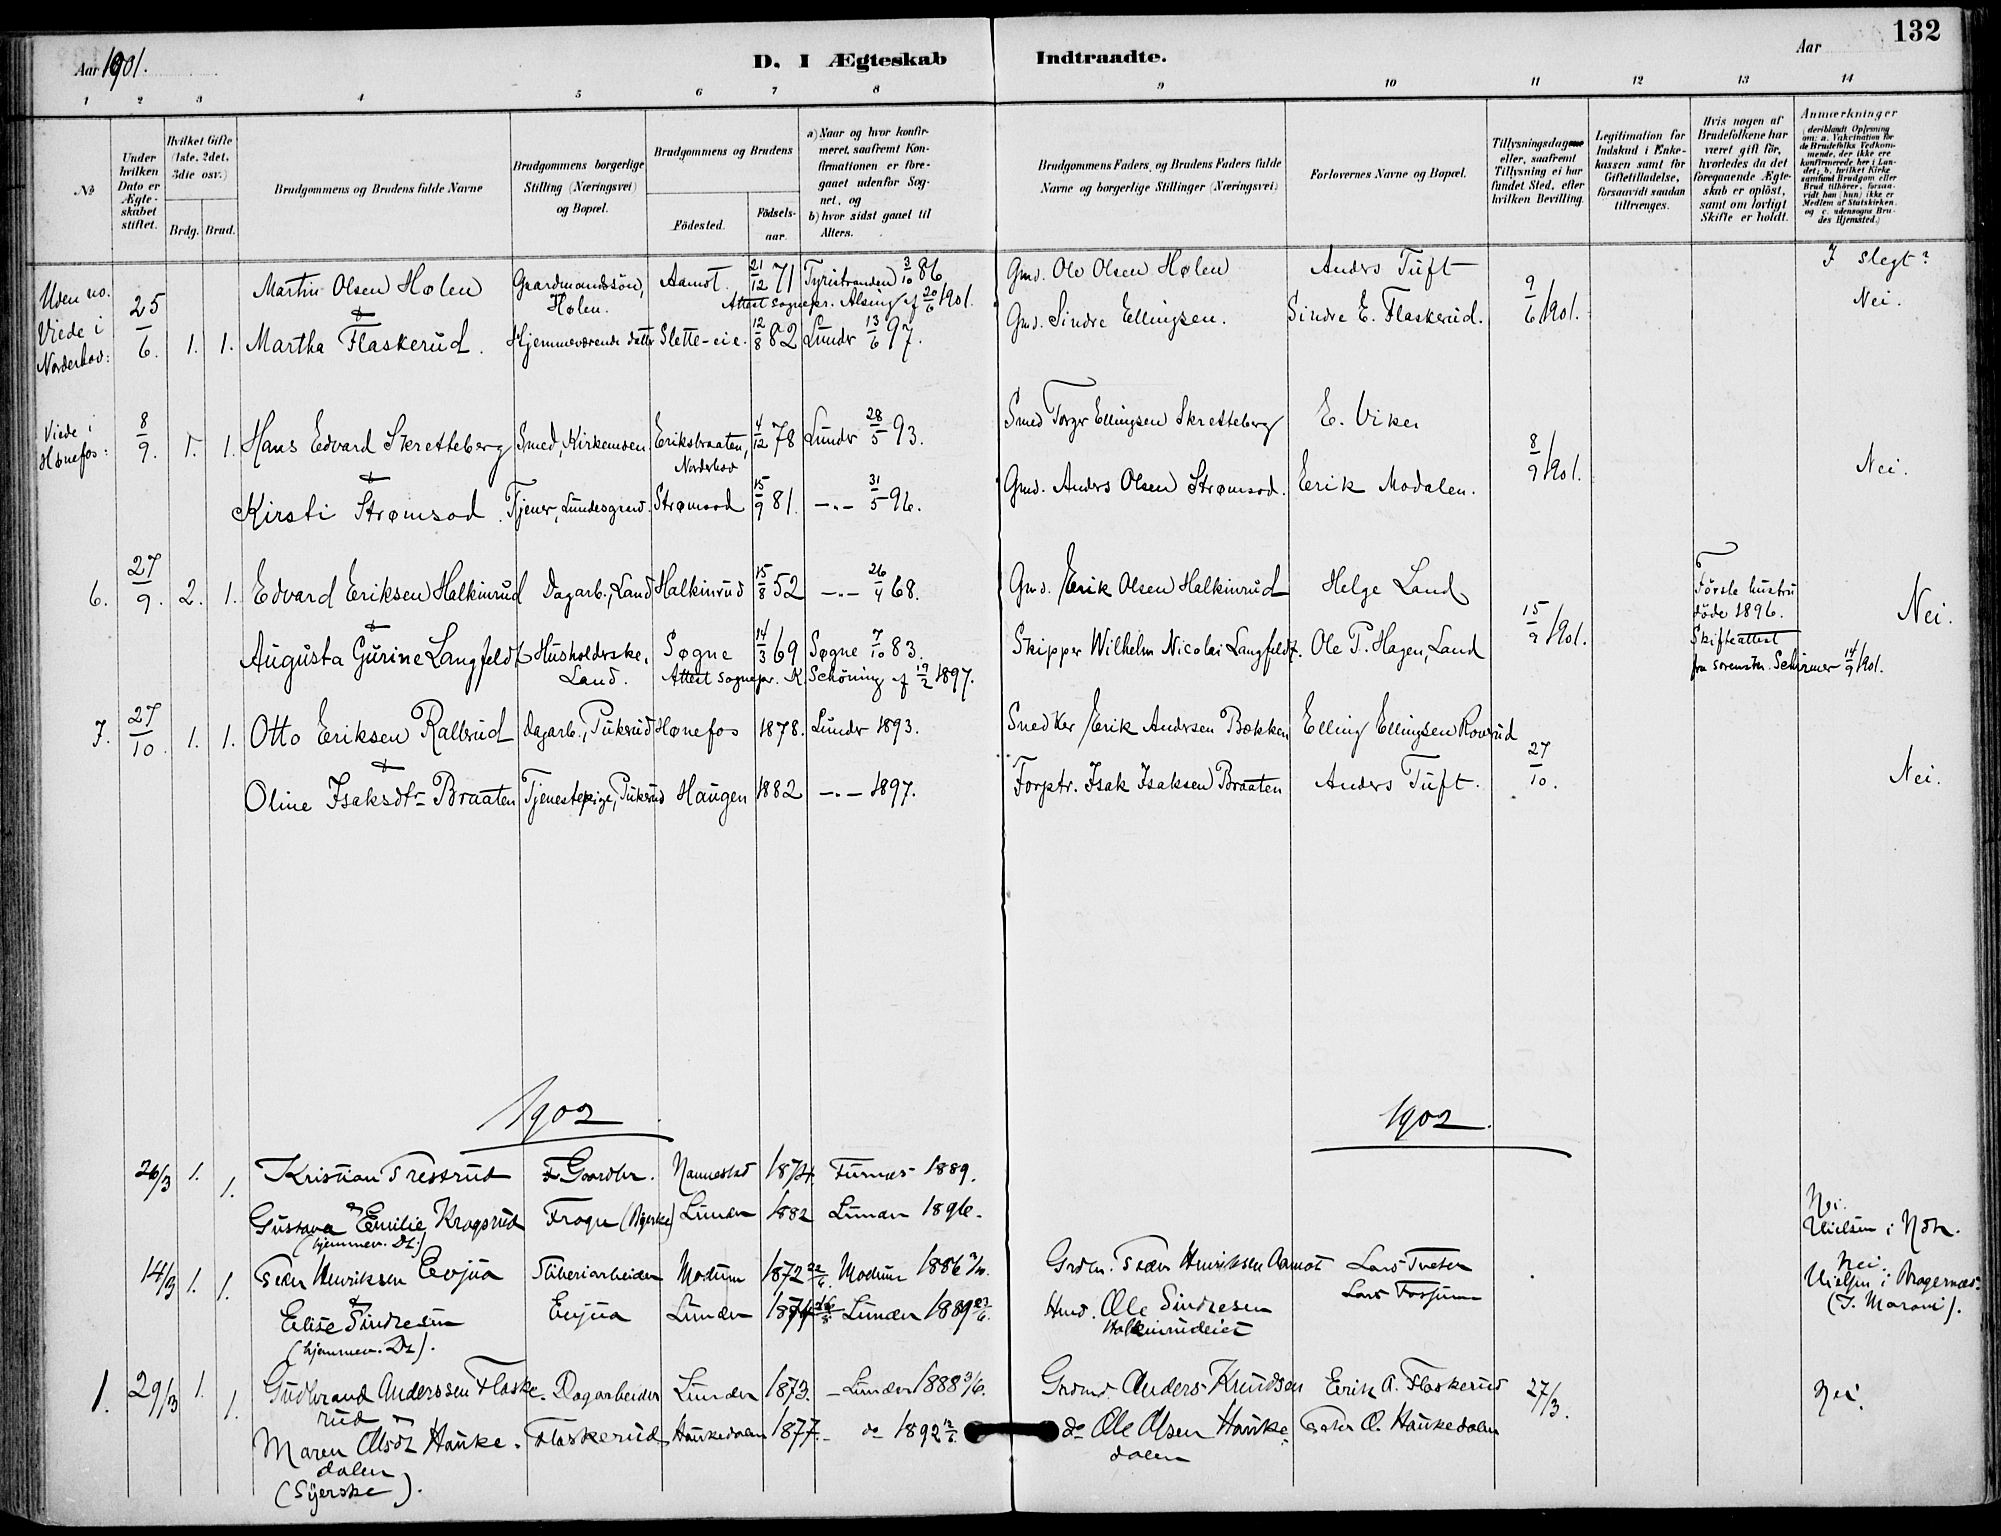 Aar 1901.
D. I Ægteskab Indtraadte.
Aar
132
1 2 3 4 5 6 7 8 9 10 11 12 13 14
No
Under hvilken Dato er Ægteskabet stiftet.
Hvilket Gifte (1ste, 2det, 3die osv.)
Brdg. Brud.
Brudgommens og Brudens fulde Navne
Brudgommens borgerlige Stilling (Næringsvei) og Bopæl.
Brudgommens og Brudens
Födested.
Födsels-aar.
a) Naar og hvor konfir-
meret, saafremt Kon-
firmationen er fore-
gaaet udenfor Sog-
net, og
b) hvor sidst gaaet til
Alters.
Brudgommens Faders, og Brudens Faders fulde
Navne og borgerlige Stillinger (Næringsvei)
Forlovernes Navne og Bopæl.
Tillysningsdagene
eller, saafremt
Tillysning ei har
fundet Sted, efter
hvilken Bevilling.
Legitimation for
Indskud i Enke-
kassen samt for
Giftetilladelse,
forsaavidt saadan
tiltrænges.
Hvis nogen af
Brudefolkene har
været gift för,
hvorledes da det
foregaaende Ægte-
skab er oplöst,
samt om lovligt
Skifte er holdt.
Anmærkninger
(deriblandt Oplysning
om: a. Vakcination for
de Brudefolks Vedkom-
mende, der ikke ere
konfirmerede her i Lan-
det; b. hvilket Kirke-
samfund Brudgom eller
Brud tilhörer, forsaa-
vidt han (hun) ikke er
Medlem af Statskirken,
og c. udensogns Bru-
des Hjemsted.)
I slegt?
Uden no. Viede i Norderhov:
25/6. 1. 1.
Martin Olsen Hølen Gaardmandssön, Hølen. Aamot. 21/12 71 Tyristranden 3/10 86
Attest sognepr. Alsing af 20/6 1901.
Gmd. Ole Olsen Hølen Anders Tuft 9/6 1901. Nei.
&
Martha Flaskerud. Hjemmeværende datter Slette-eie. 12/8 82 Lunder 13/6 97.
Gmd. Sindre Ellingsen. Sindre E. Flaskerud.
Viede i Hønefos: 8/9. 1. 1.
Hans Edvard Skretteberg Smed, Kirkemoen. Eriksbraaten, Norderhov 4/12 78 Lunder 28/5 93.
Smed Torger Ellingsen Skretteberg E. Viker 8/9 1901. Nei.
&
Kirsti Strømsod. Tjener, Lundesgrend. Strømsod 15/9 81. -"- 31/5 96.
Gmd. Anders Olsen Strømsod. Erik Modalen.
6. 27/9. 2. 1. Edvard Eriksen Halkinrud Dagarb., Land Halkinrud 15/8 52 -"- 26/4 68.
Gmd. Erik Olsen Halkinrud Helge Land 15/9 1901.
Første hustru døde 1896. Skifteattest fra sorenskr. Schirmer 14/9 1901.
Nei.
&
Augusta Gurine Langfeldt Husholderske, Land. Søgne 14/3 69 Søgne 7/10 83.
Attest sognepr. K. Schöning af 19/2 1897.
Skipper Wilhelm Nicolai Langfeldt. Ole P. Hagen, Land
7. 27/10. 1. 1. Otto Eriksen Ralbrud Dagarb., Pukerud Hønefos 1878. Lunder 1893.
Snedker Erik Andersen Bækken Elling Ellingsen Roverud 27/10. Nei.
&
Oline Isaksdtr Braaten Tjenestepige, Pukerud Haugen 1882 -"- 1897.
Forptr. Isak Isaksen Braaten Anders Tuft.
1902 1902.
26/3 1. 1. Kristian Trestrud Gaardbr. Nannestad 1874 Furnæs 1889.
&
Gustava Emilie Krogsrud Frogn Lunder 1882 Lunder 1896.
(hjemmev. Dt.)
Nei.
Vielsen i
14/3 1. 1. Peder Henriksen Evjua Sliberiarbeider Modum 1872 Modum 1886
Grdm. Peder Henriksen Aamot Lars Tveten
Nei.
Vielsen i Bragernæs.
&
Elise Sindresen Evjua Lunder 1874 Lunder 1889
(hjemmev. Dt).
Hmd. Ole Sindresen Halkinrudeiet Lars Fossum
1. 29/3 1. 1. Gudbrand Anderssen Flaskerud Dagarbeider Lunder 1873. Lunder 1888 3/6.
Grdmd. Anders Knudsen Erik A. Flaskerud 27/3. Nei.
Maren Olsdt Haukedalen Flaskerud Haukedalen 1877. do 1892
(Syerske).
do Ole Olsen Haukedalen Peder O. Haukedalen